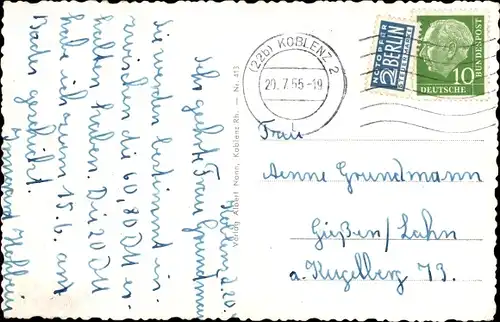 (22b) KOBLENZ 2
20.7.55-19
NOTOPFER
2 BERLIN
STEUERMARKE
10
DEUTSCHE
BUNDESPOST
Frau
Aenne Grundmann
Gießen/Lahn
a. Kugelberg 73.
Verlag Albert Nonn, Koblenz Rh. — Nr. 413
Koblenz d. 20.
Sehr geehrte Frau Grundmann
Sie werden bestimmt in-
zwischen die 60,80 DM er-
halten haben. Die 20 DM
habe ich zum 15.6. am
geschickt.